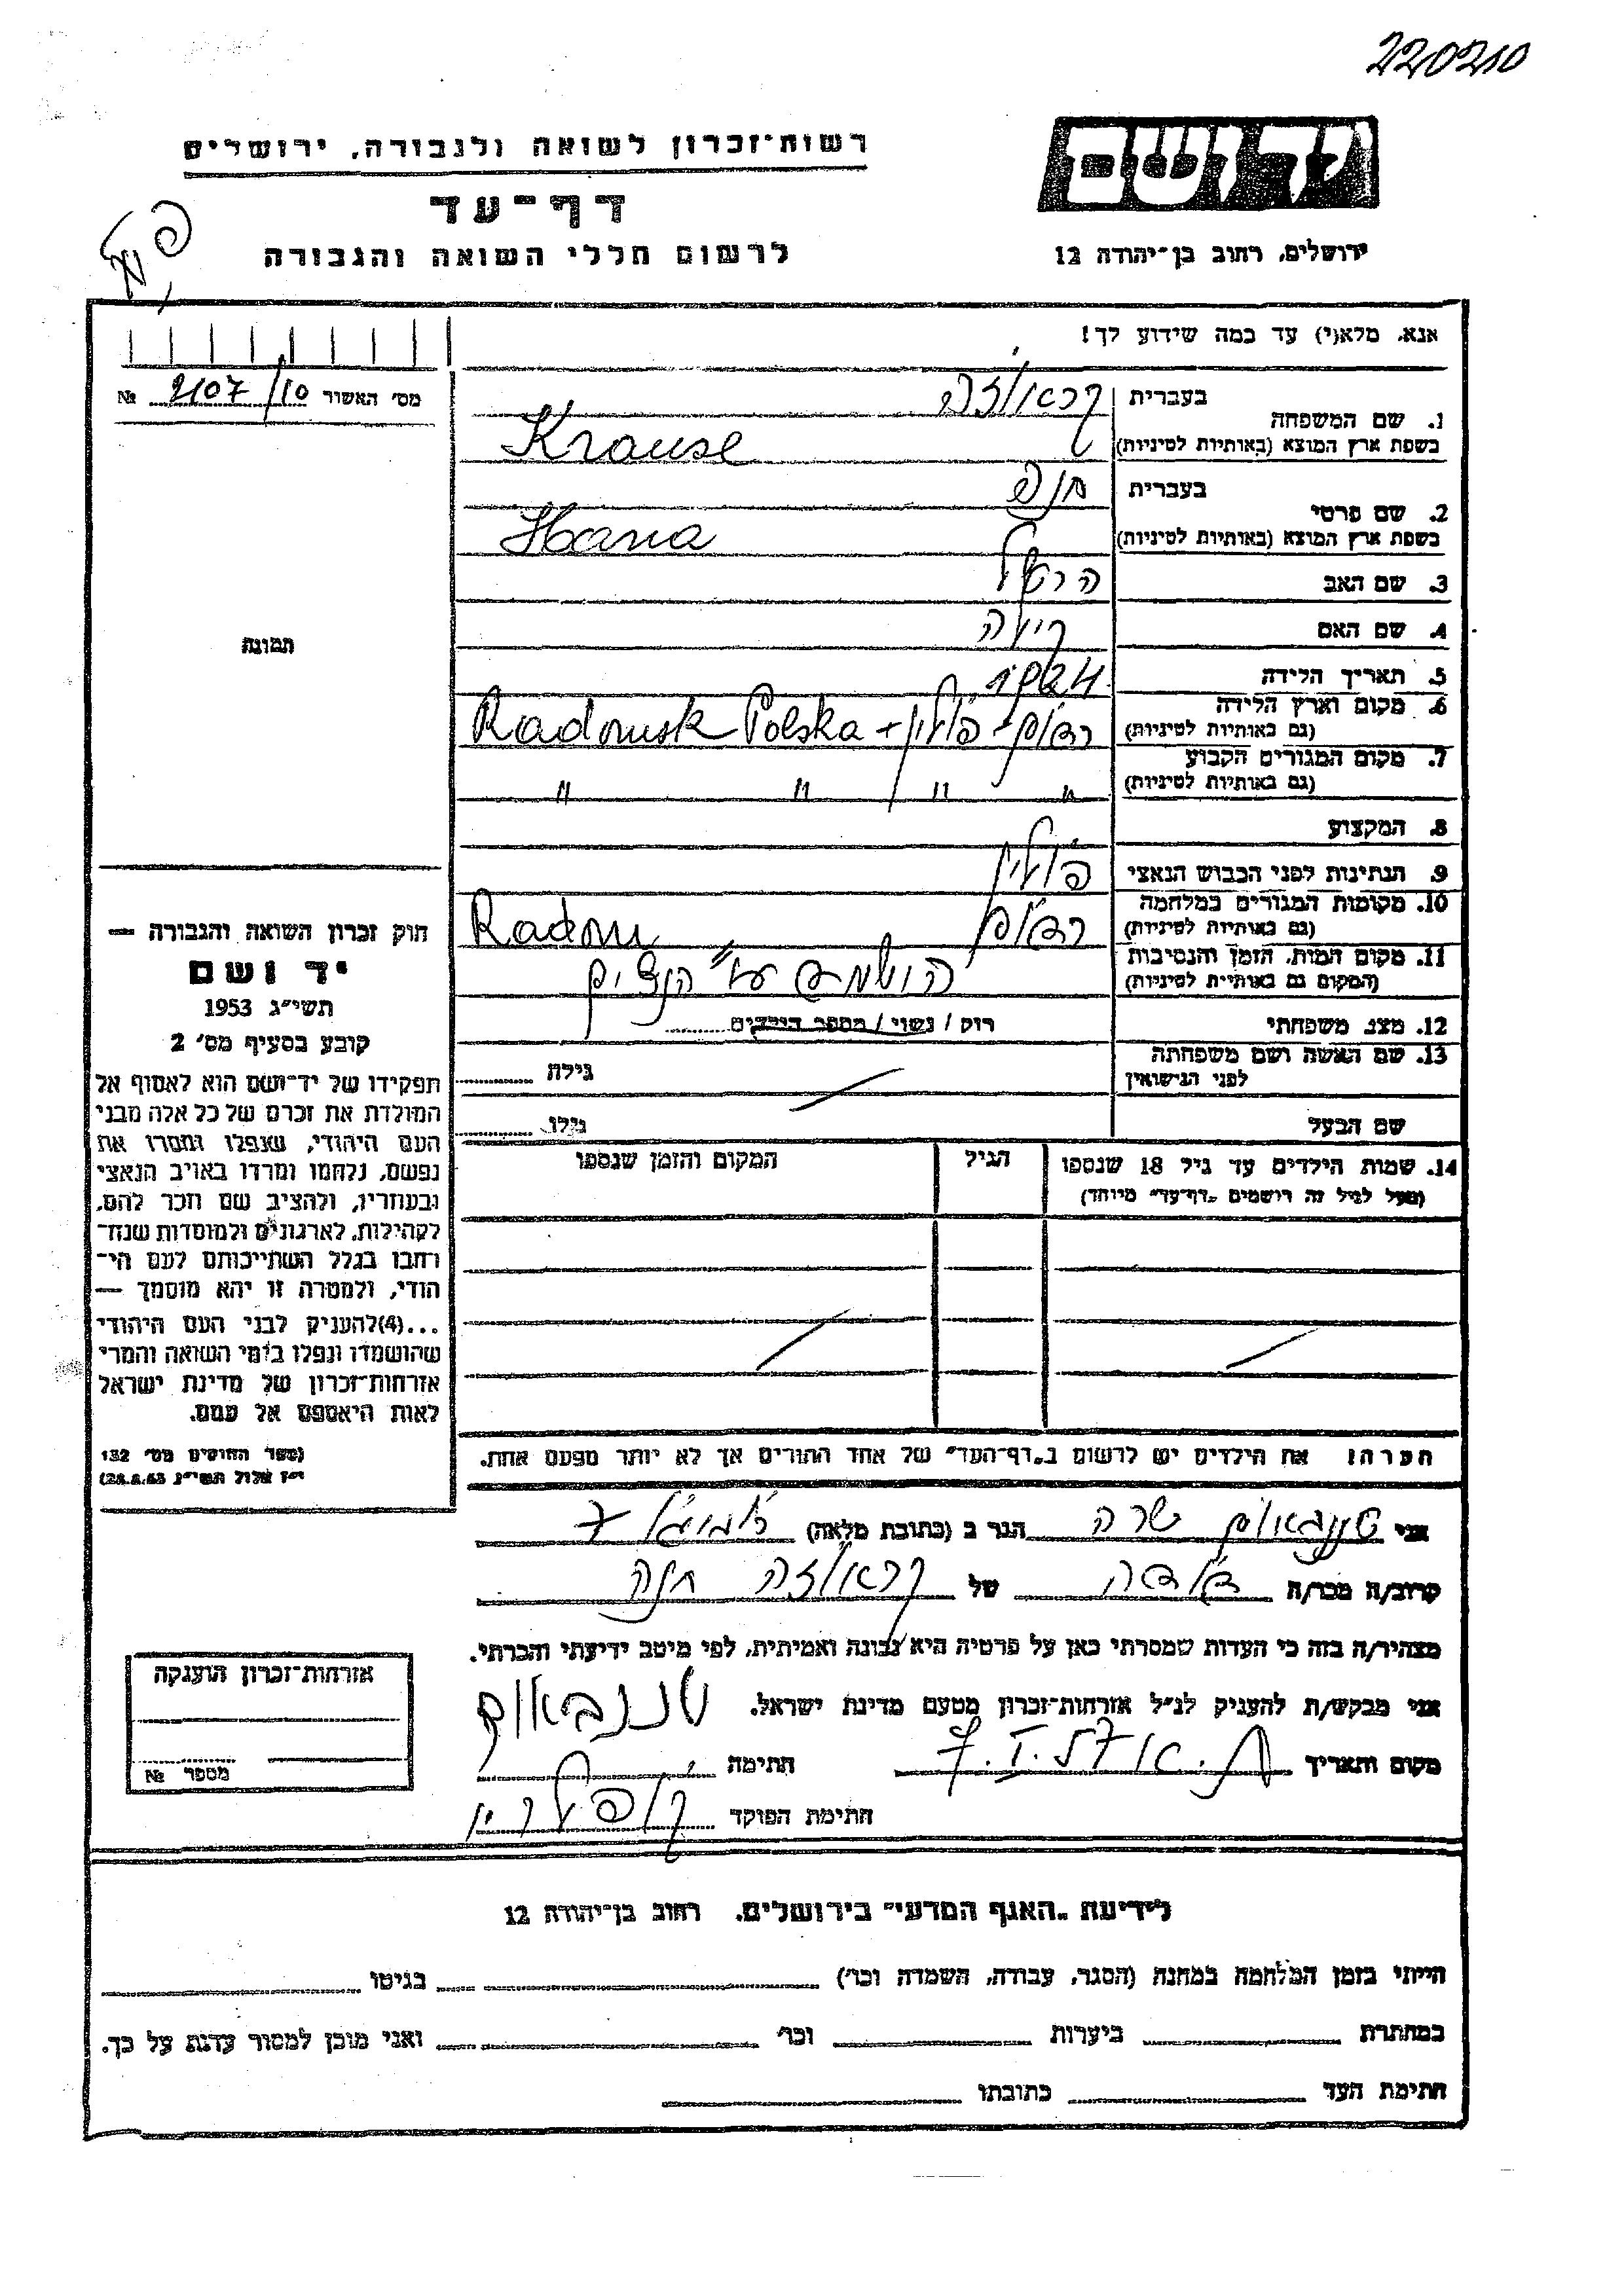 220210
יד ושם
רשות-זכרון לשואה ולגבורה, ירושלים
דף-עד
לרשום חללי השואה והגבורה
ירושלים, רחוב בן-יהודה 12
אנא, מלא(י) עד כמה שידוע לך!
מס׳ האשור 2107/10 №
1. שם המשפחה
בעברית קראוזה
בשפת ארץ המוצא (באותיות לטיניות) Krause
2. שם פרטי
בעברית חנה
בשפת ארץ המוצא (באותיות לטיניות) Hana
3. שם האב הרשל
4. שם האם
5. תאריך הלידה 1924
6. מקום וארץ הלידה
(גם באותיות לטיניות) רדום - פולין + Radomsk Polska
7. מקום המגורים הקבוע
(גם באותיות לטיניות) " " " "
8. המקצוע
9. הנתינות לפני הכבוש הנאצי פולין
10. מקומות המגורים במלחמה
(גם באותיות לטיניות) רדום Radom
11. מקום המות, הזמן והנסיבות
(המקום גם באותיות לטיניות) הושמדה ע״י הנצים
12. מצב משפחתי רוק / נשוי / מספר הילדים
13. שם האשה ושם משפחתה
לפני הנישואין גילה
שם הבעל גילו
14. שמות הילדים עד גיל 18 שנספו הגיל המקום והזמן שנספו
(מעל לגיל זה רושמים "דף-עד" מיוחד)
הערה: את הילדים יש לרשום ב"דף-העד" של אחד ההורים אך לא יותר מפעם אחת.
תמונה
חוק זכרון השואה והגבורה —
יד ושם
תשי״ג 1953
קובע בסעיף מס׳ 2
תפקידו של יד-ושם הוא לאסוף אל
המולדת את זכרם של כל אלה מבני
העם היהודי, שנפלו ומסרו את
נפשם, נלחמו ומרדו באויב הנאצי
ובעוזריו, ולהציב שם וזכר להם,
לקהילות, לארגונים ולמוסדות שנח-
רבו בגלל השתייכותם לעם הי-
הודי, ולמטרה זו יהא מוסמך —
...(4)להעניק לבני העם היהודי
שהושמדו ונפלו בימי השואה והמרי
אזרחות-זכרון של מדינת ישראל
לאות היאספם אל עמם.
(ספר החוקים מס׳ 132
י״ז אלול תשי״ג 28.8.53)
אני טננבאום שרה הגר ב (כתובת מלאה) 7
קרוב/ה מכר/ה דודה של קראוזה חנה
מצהיר/ה בזה כי העדות שמסרתי כאן על פרטיה היא נכונה ואמיתית, לפי מיטב ידיעתי והכרתי.
אני מבקש/ת להעניק לנ״ל אזרחות-זכרון מטעם מדינת ישראל. טננבאום
מקום ותאריך חתימה
חתימת הפוקד
אזרחות-זכרון הוענקה
מספר №
לידיעת "האגף המדעי" בירושלים, רחוב בן-יהודה 12
הייתי בזמן המלחמה במחנה (הסגר, עבודה, השמדה וכו׳) בגיטו
במחתרת ביערות וכו׳ ואני מוכן למסור עדות על כך.
חתימת העד כתובתו